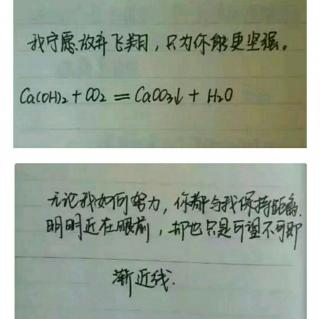 我宁愿放弃飞翔，只为你能更坚强。
Ca(OH)₂ + CO₂ = CaCO₃↓ + H₂O
无论我如何努力，你都与我保持距离，
明明近在眼前，却也只是可望不可即
渐近线.